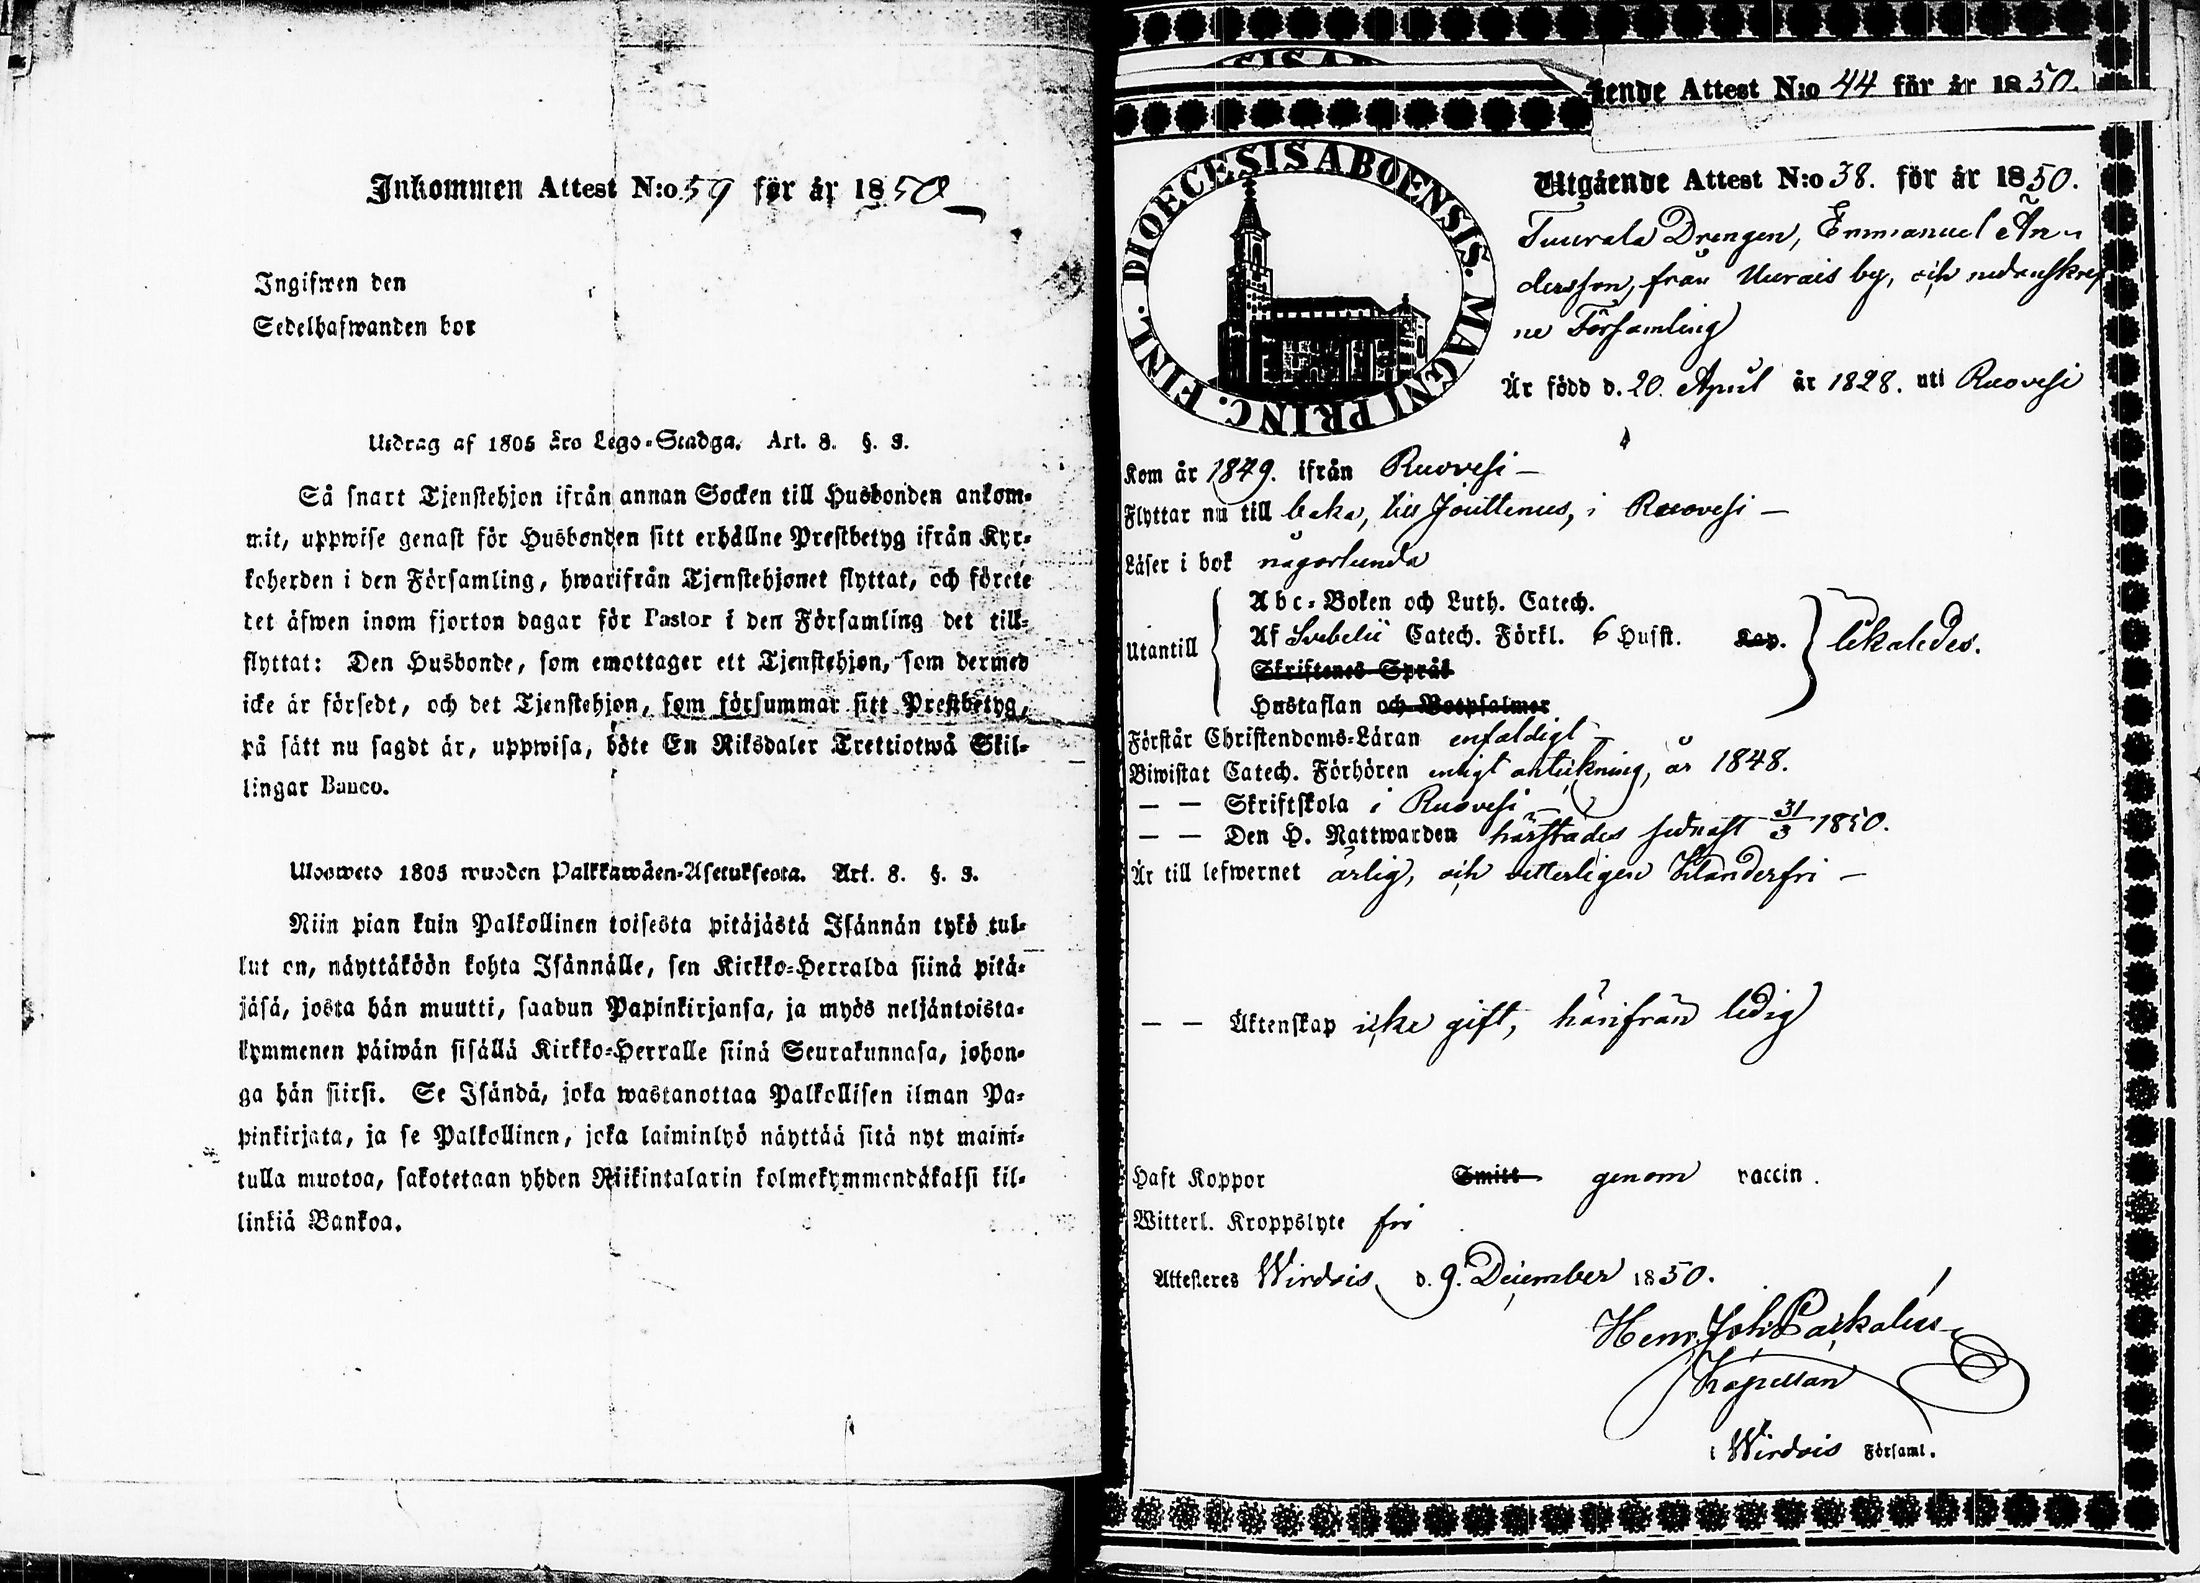 Inkommen Attest N:o 59 för år 1850
Ingifwen den
Sedelhafwanden bor
Utdrag af 1805 års Lego-Stadga. Art. 8. §. 3.
Så snart Tjenstehjon ifrån annan Socken till Husbonden ankom-
mit, uppwise genast för Husbonden sitt erhållne Prestbetyg ifrån Kyr-
koherden i den Församling, hwarifrån Tjenstehjonet flyttat, och förete
det äfwen inom fjorton dagar för Pastor i den Församling det till-
flyttat: Den Husbonde, som emottager ett Tjenstehjon, som dermed
icke är försedt, och det Tjenstehjon, som försummar sitt Prestbetyg,
på sätt nu sagdt är, uppwisa, böte En Riksdaler Trettiotwå Skil-
lingar Banco.
Ulosweto 1805 wuoden Palkkawäen-Asetuksesta. Art. 8. §. 3.
Niin pian kuin Palkollinen toisesta pitäjästä Isännän tykö tul-
lut on, näyttäköön kohta Isännälle, sen Kirkko-Herralda siinä pitä-
jäsä, josta hän muutti, saadun Papinkirjansa, ja myös neljäntoista-
kymmenen päiwän sisällä Kirkko-Herralle siinä Seurakunnasa, johon-
ga hän siirsi. Se Isändä, joka wastanottaa Palkollisen ilman Pa-
pinkirjata, ja se Palkollinen, joka laiminlyö näyttää sitä nyt maini-
tulla muotoa, sakotetaan yhden Riikintalarin kolmekymmendäkaksi kil-
linkiä Bankoa.
SIS AB
gende Attest N:o 44 för år 1850.
DIOECESIS ABOENSIS. MAGNI PRINC. FINL.
Utgående Attest N:o 38. för år 1850.
Tuurala Drengen, Emmanuel An-
dersson, från Uurais by, och nedanskref
ne Församling
Är född d. 20. April år 1828. uti Ruovesi
Kom år 1849. ifrån Ruovesi –
Flyttar nu till baka, till Jouttenus, i Ruovesi –
Läser i bok någorlunda
Abc-Boken och Luth. Catech.
Utantill Af Svebelii Catech. Förkl. 6 Hufst. Kap. likaledes.
Skriftenes Språk
Hustaflan och Botpsalmer
Förstår Christendoms-Läran enfaldigt –
Biwistat Catech. Förhören enligt anteckning, år 1848.
– – Skriftskola i Ruovesi –
– – Den H. Nattwarden härstädes sednast 31/3 1850.
Är till lefwernet ärlig, och vitterligen klanderfri –
– – Äktenskap icke gift, härifrån ledig
Haft Koppor Smitt genom vaccin.
Witterl. Kroppslyte fri
Attesteres Wirdois d. 9. December 1850.
Henr. Joh.
Kapellan
i Wirdois Församl.